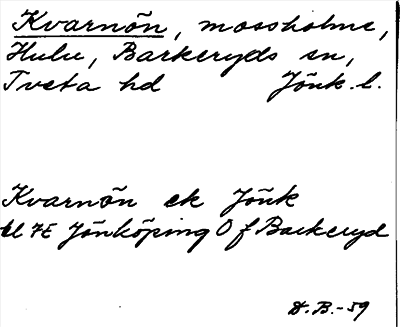 Kvarnön, mossholme,
Hulu, Barkeryds sn,
Tveta hd Jönk. l.
Kvarnön ek Jönk
bl 7E Jönköping Ö f Barkeryd
D. B. -59